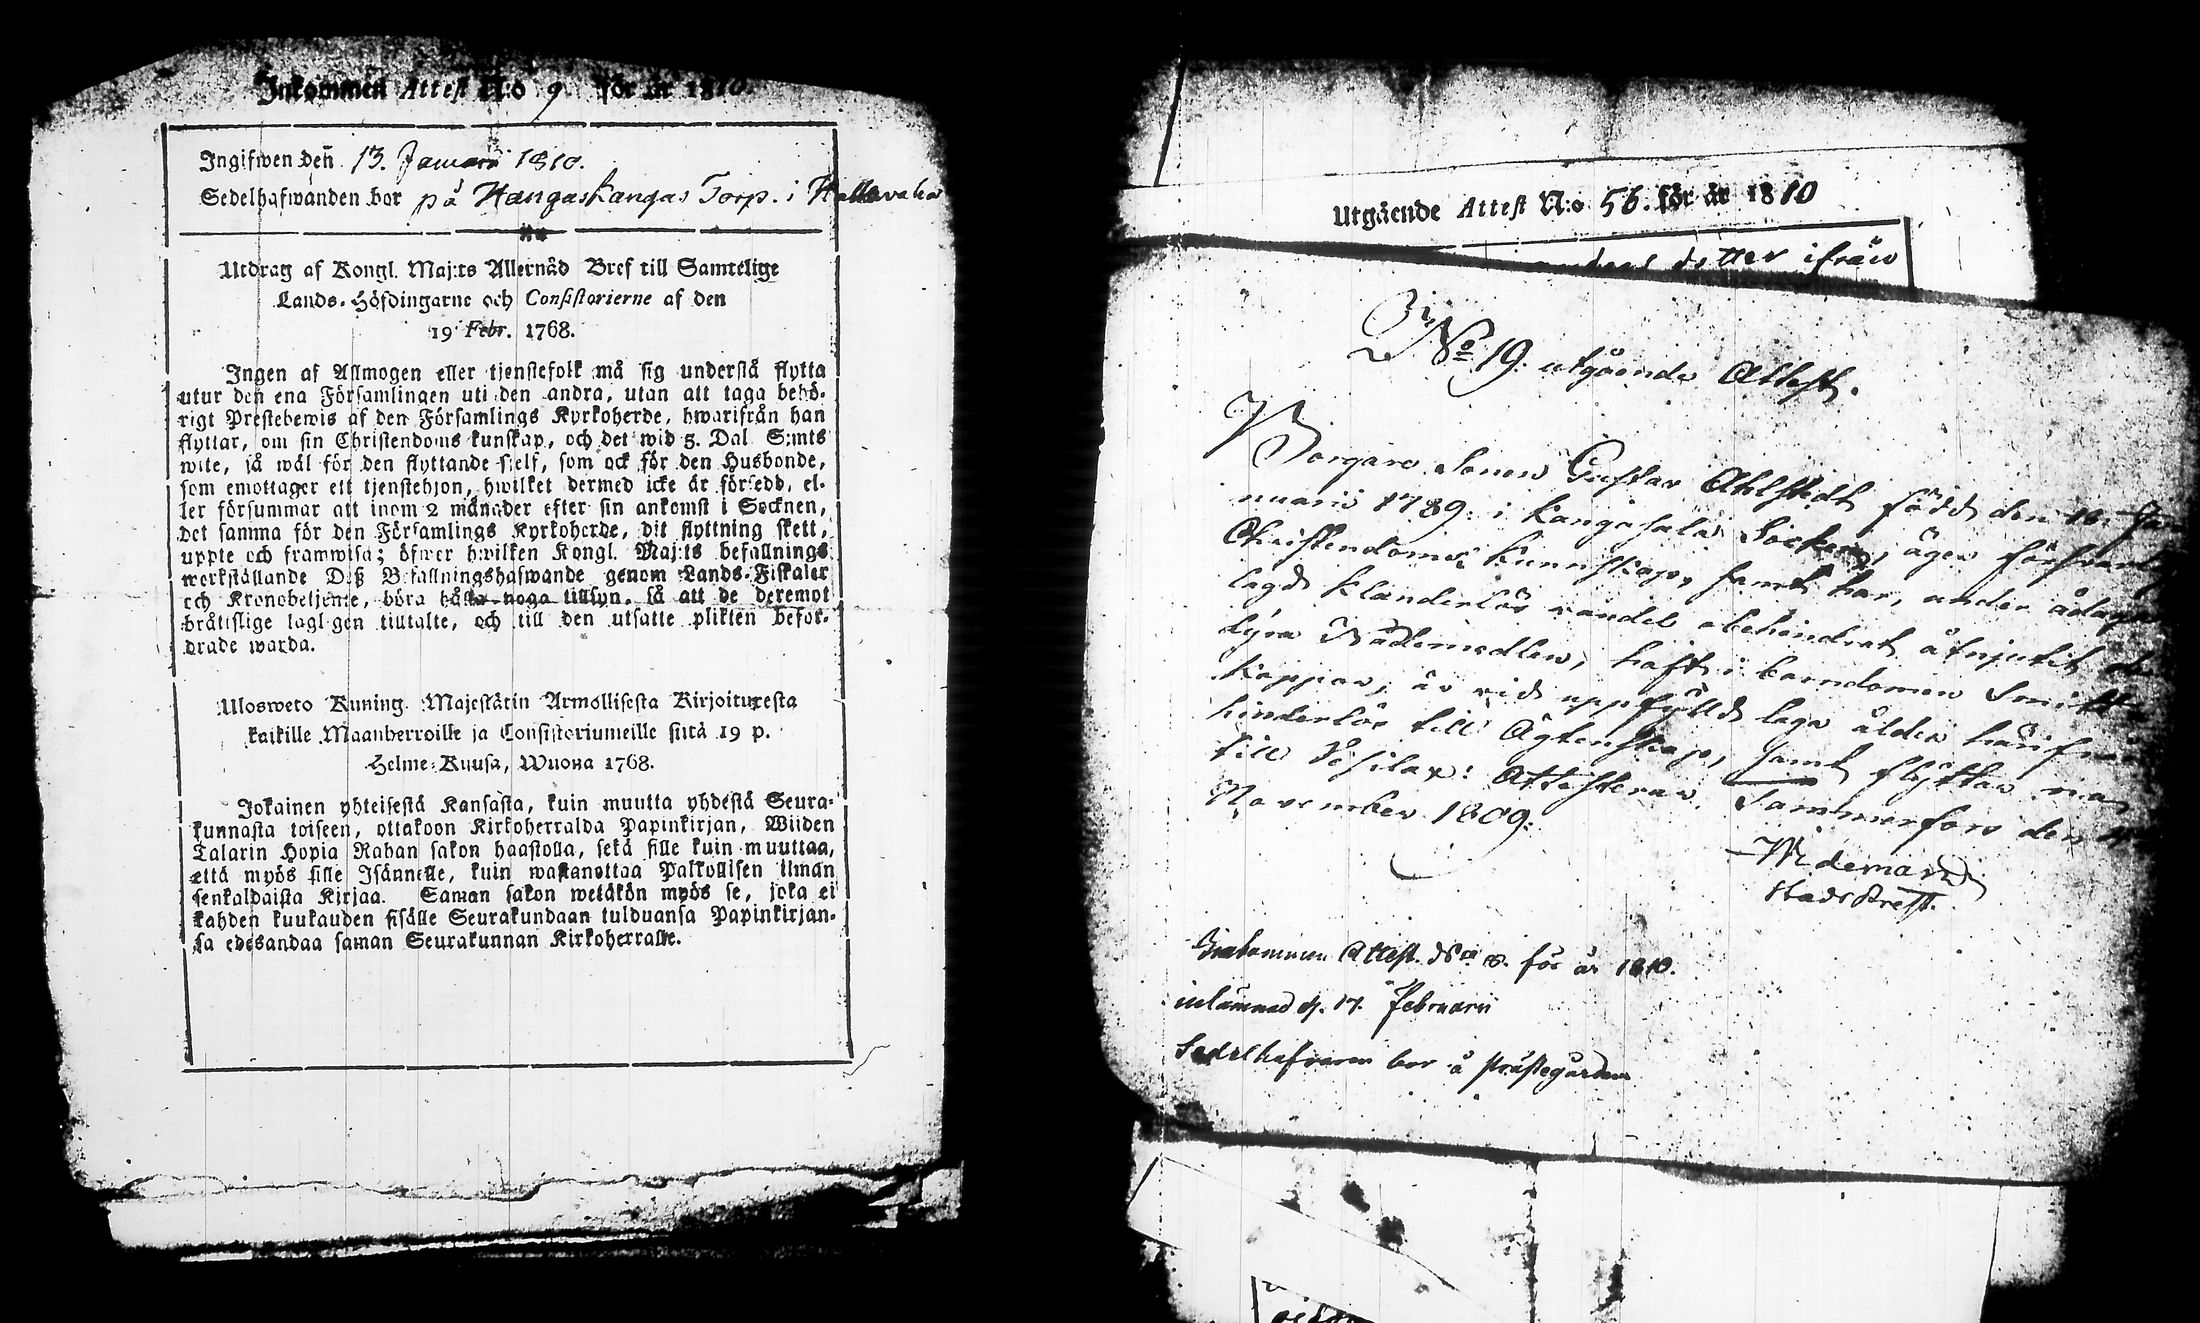 Inkommen Attest N:o 9 för år 1810.
Ingifwen den 13. Januarii 1810.
Sedelhafwanden bor på Hangaskangas Torp. i
Utdrag af Kongl. Maj:ts Allernåd Bref till Samtelige
Lands-Höfdingarne och Consistorierne af den
19 Febr. 1768.
Ingen af Allmogen eller tjenstefolk må sig understå flytta
utur den ena Församlingen uti den andra, utan att taga behö-
rigt Prestebewis af den Församlings Kyrkoherde, hwarifrån han
flyttar, om sin Christendoms kunskap, och det wid 5. Dal S:mts
wite, så wäl för den flyttande sjelf, som ock för den Husbonde,
som emottager ett tjenstehjon, hwilket dermed icke är försedd, el-
ler försummar att inom 2 månader efter sin ankomst i Socknen,
det samma för den Församlings Kyrkoherde, dit flyttning skett,
uppte och framwisa; öfwer hwilken Kongl. Maj:ts befallnings
werkställande Deß Befallningshafwande genom Lands-Fiskaler
och Kronobetjente, böra hålla noga tillsyn, så att de deremot
bråtislige lagligen tilltalte, och till den utsatte plikten befor-
drade warda.
Ulosweto Kuning. Majestätin Armollisesta Kirjoituxesta
kaikille Maanherroille ja Consistoriumeille siitä 19 p.
Helme-Kuusa, Wuona 1768.
Jokainen yhteisestä Kansasta, kuin muutta yhdestä Seura-
kunnasta toiseen, ottakoon Kirkoherralda Papinkirjan, Wiiden
Talarin Hopia Rahan sakon haastolla, sekä sille kuin muuttaa,
että myös sille Isännelle, kuin wastanottaa Palkollisen ilman
senkaldaista Kirjaa. Saman sakon wetäkön myös se, joka ei
kahden kuukauden sisälle Seurakundaan tulduansa Papinkirjan-
sa edesandaa saman Seurakunnan Kirkoherralle.
Utgående Attest N:o 56. för år 1810
dotter ifrån
No 19. utgående Attest.
Borgare Sonen Gustav Ahlstedt född den 16. Ja
nuarii 1789. i Kangasala Socken, äger försvarl
Christendoms Kunnskap, samt har, under ådaga
lagd klanderlös vandel obehindrat åtnjutit de
dyra Nådemedlen, haft i barndomen Smitt
koppor, är vid uppfylld laga ålder härifrån
hinderlös till Ägtenskap, samt flyttar nu
till Vesilax: Attesterar. Tammerfors den
November 1809.
Wideman
StadsPrest.
Inkommen Attest. No 18. för år 1810.
inlämnad d. 17. Februarii
Sedelhafvaren bor å Prästegården